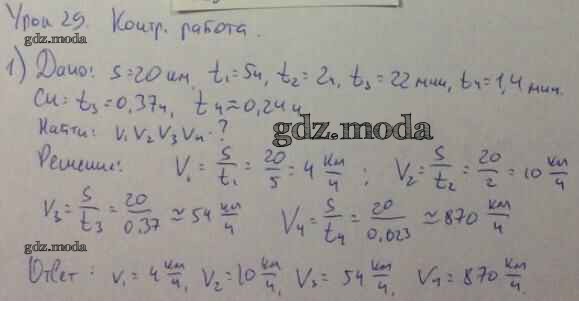 Урок 29. Контр. работа.
gdz.moda
1) Дано: S=20 км, t₁=5ч, t₂=2ч, t₃=22 мин, t₄=1,4 мин.
Си: t₃=0,37ч, t₄≈0,24ч
Найти: V₁ V₂ V₃ V₄-?
gdz.moda
Решение: V₁ = S/t₁ = 20/5 = 4 км/ч ; V₂ = S/t₂ = 20/2 = 10 км/ч
V₃ = S/t₃ = 20/0,37 ≈ 54 км/ч V₄ = S/t₄ = 20/0,023 ≈ 870 км/ч
gdz.moda
Ответ: V₁=4 км/ч, V₂=10 км/ч, V₃=54 км/ч, V₄=870 км/ч.